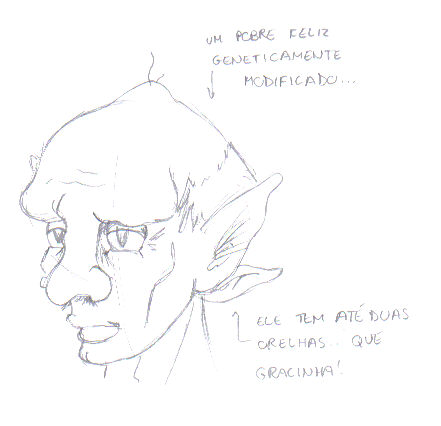 UM POBRE FELIZ
GENETICAMENTE
MODIFICADO...
ELE TEM ATÉ DUAS
ORELHAS.. QUE
GRACINHA!